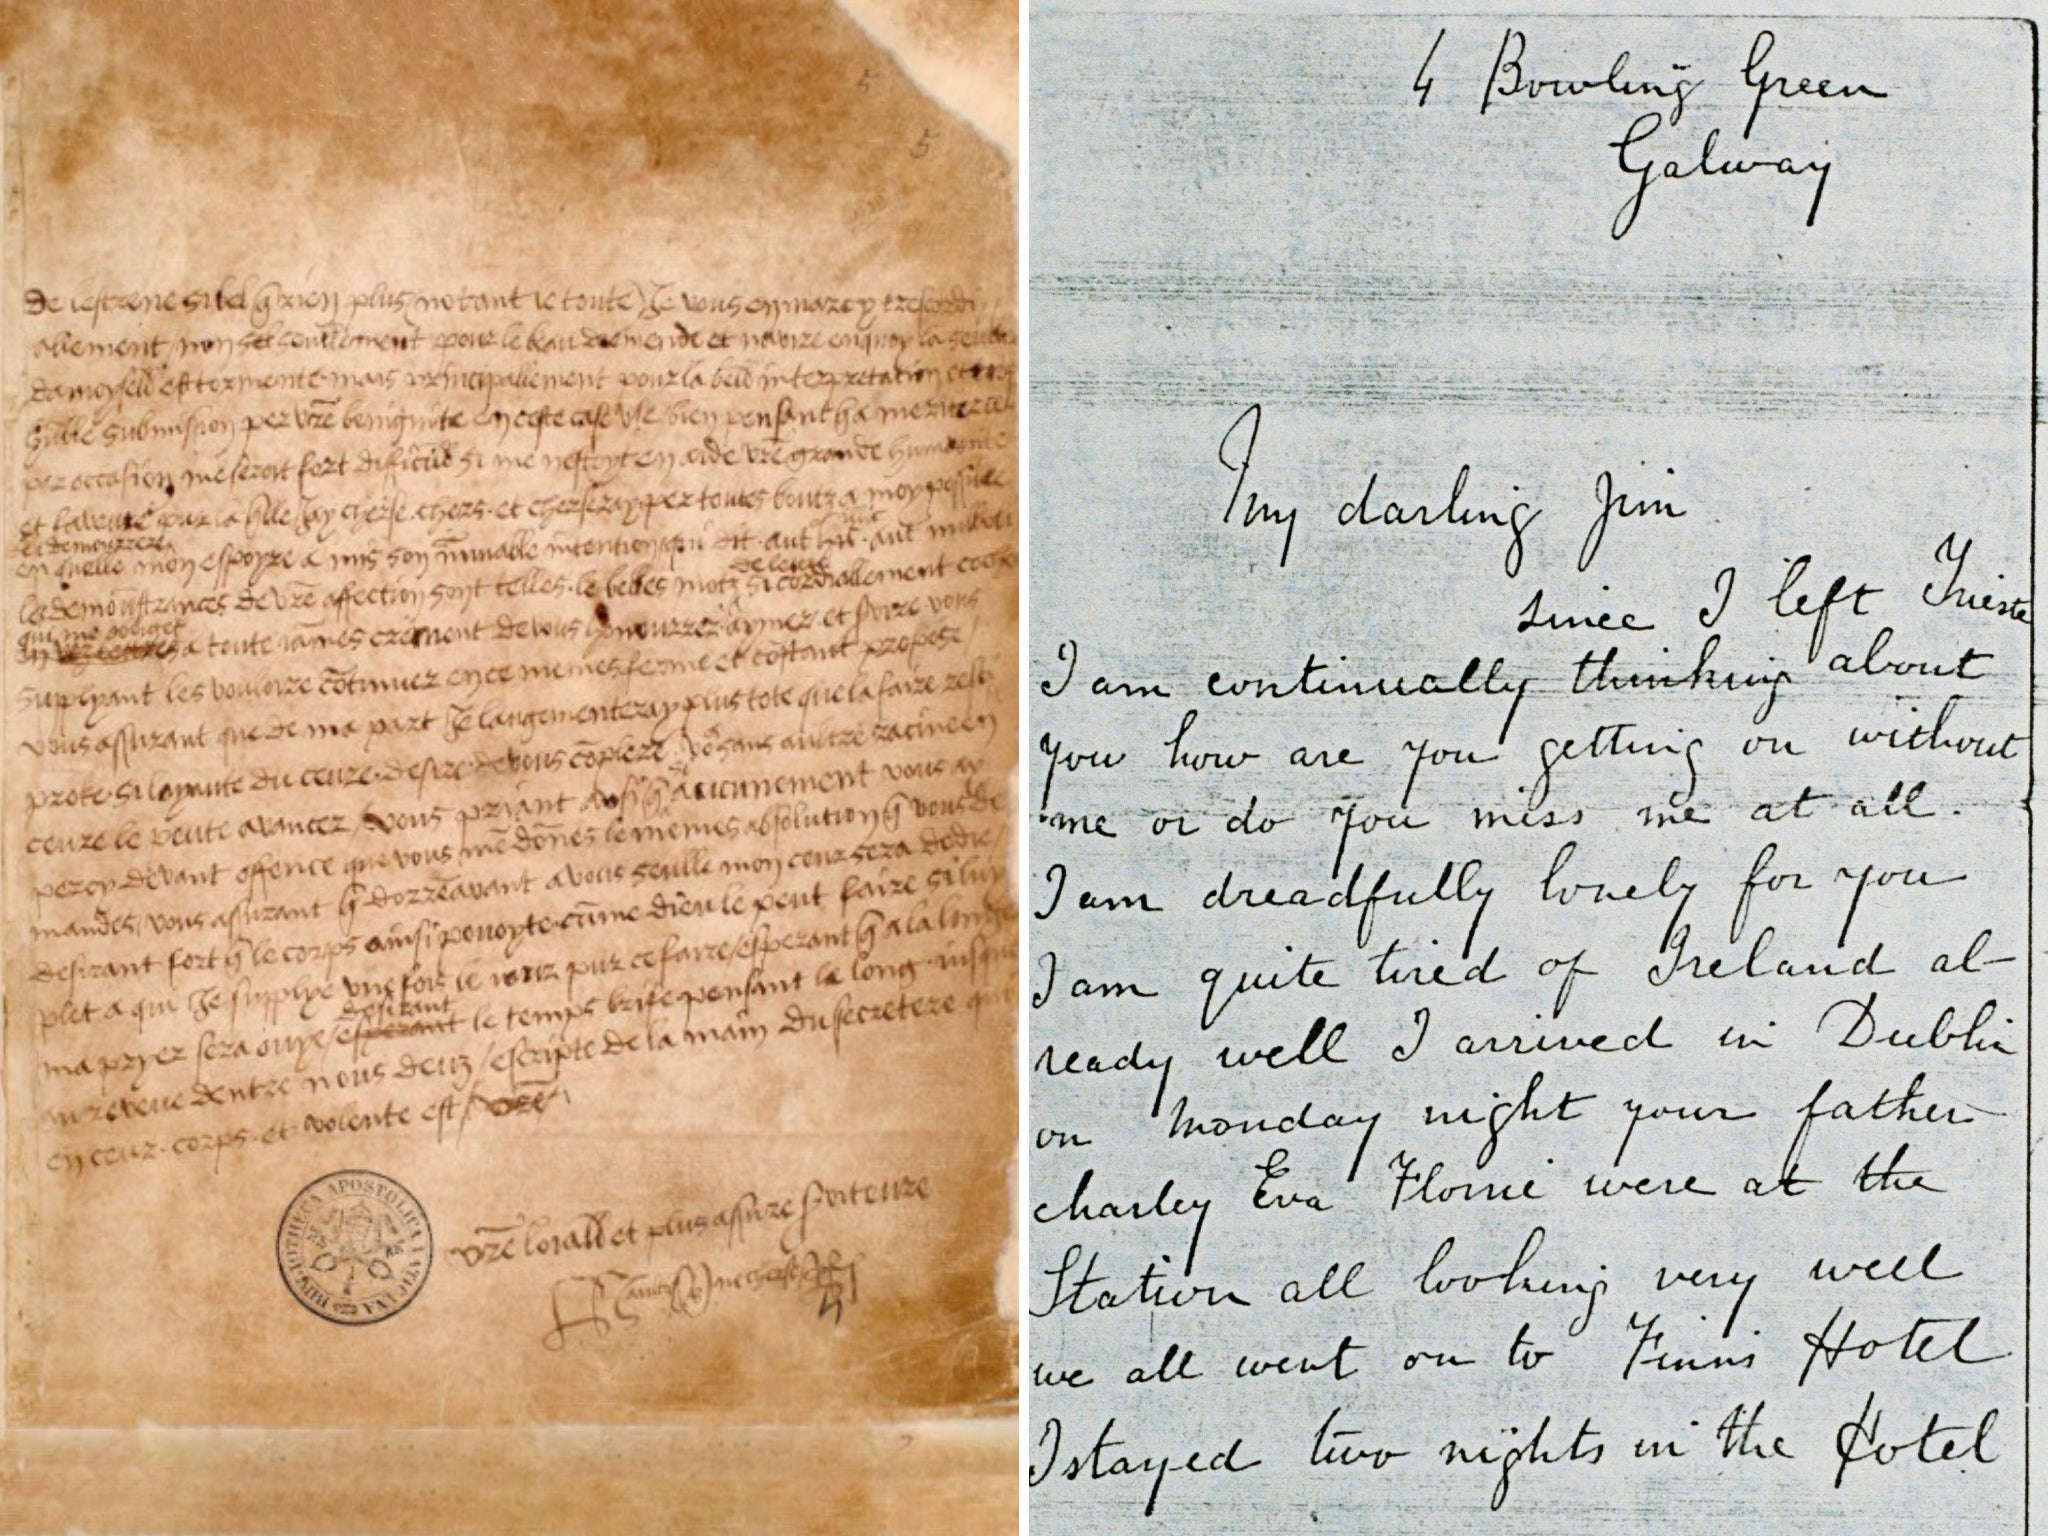 5
5
De lestrene si bel q̃ rien plus notant le toute Je vous en marcy trescordi
allement non seullement pour le beau diemende et navire en quoy la seulle
damoyselle est tormente mais principallement pour la belle interpretation et trop
humble submission per vr̃e benignite en ceste case use bien pensant q̃ a meriter cela
per occasion me seroit fort dificille si me nestoyt en aide vr̃e grande humanite
et q̃lle Jay cherse chers et cherseray per toutes a moy possible
et demourrera
en quelle mon espoyre a mis son immuable intention qui dit aut illic aut nullibi
les demonstrances de vr̃e affection sont telles le belles motz de lettre si cordiallement
qui me obliget
a toute james de vous honourrer aymer et servire vous
suppliant les vouloire continuer en ce mesmes ferme et constant propose
vous assurant que de ma part Je laugementeray plus tote que la faire resi
proke si loyaute du ceure desire de vous complere sans aultre racine en
ceure le peute avancer vous priant ausi q̃ si aucunement vous ay
per cy devant offence que vous me donnes le memes absolution q̃ vous de
mandes vous assurant q̃ dorreavant a vous seulle mon ceur sera dedie
desirant fort q̃ le corps ainsi pouoyte cume dieu le peut faire si luy
plet a qui Je supplye une fois le iour pur ce faire esperant q̃ a la longe
ma pryer sera ouye desirant esperant le temps brife pensant le long iusque
au reveue dentre nous deuz escripte de la main du secretere qui
en ceur corps et volente est vr̃e
vr̃e loiall et plus assure serviteure
H aultre ne cherse R
BIBLIOTHECA APOSTOLICA VATICANA
4 Bowling Green
Galway
My darling Jim
since I left Trieste
I am continually thinking about
you how are you getting on without
me or do you miss me at all.
I am dreadfully lonely for you
I am quite tired of Ireland al-
ready well I arrived in Dublin
on Monday night your father
charley Eva Florrie were at the
Station all looking very well
we all went on to Finns Hotel
I stayed two nights in the Hotel